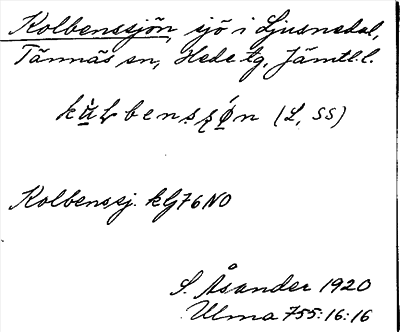 Kolbenssjön, sjö i Ljusnedal,
Tännäs sn, Hede tg, Jämtl. l.
kùlbensʂø̀n (L, SS)
Kolbenssj. kG76NO
S. Åsander 1920
Ulma 755:16:16